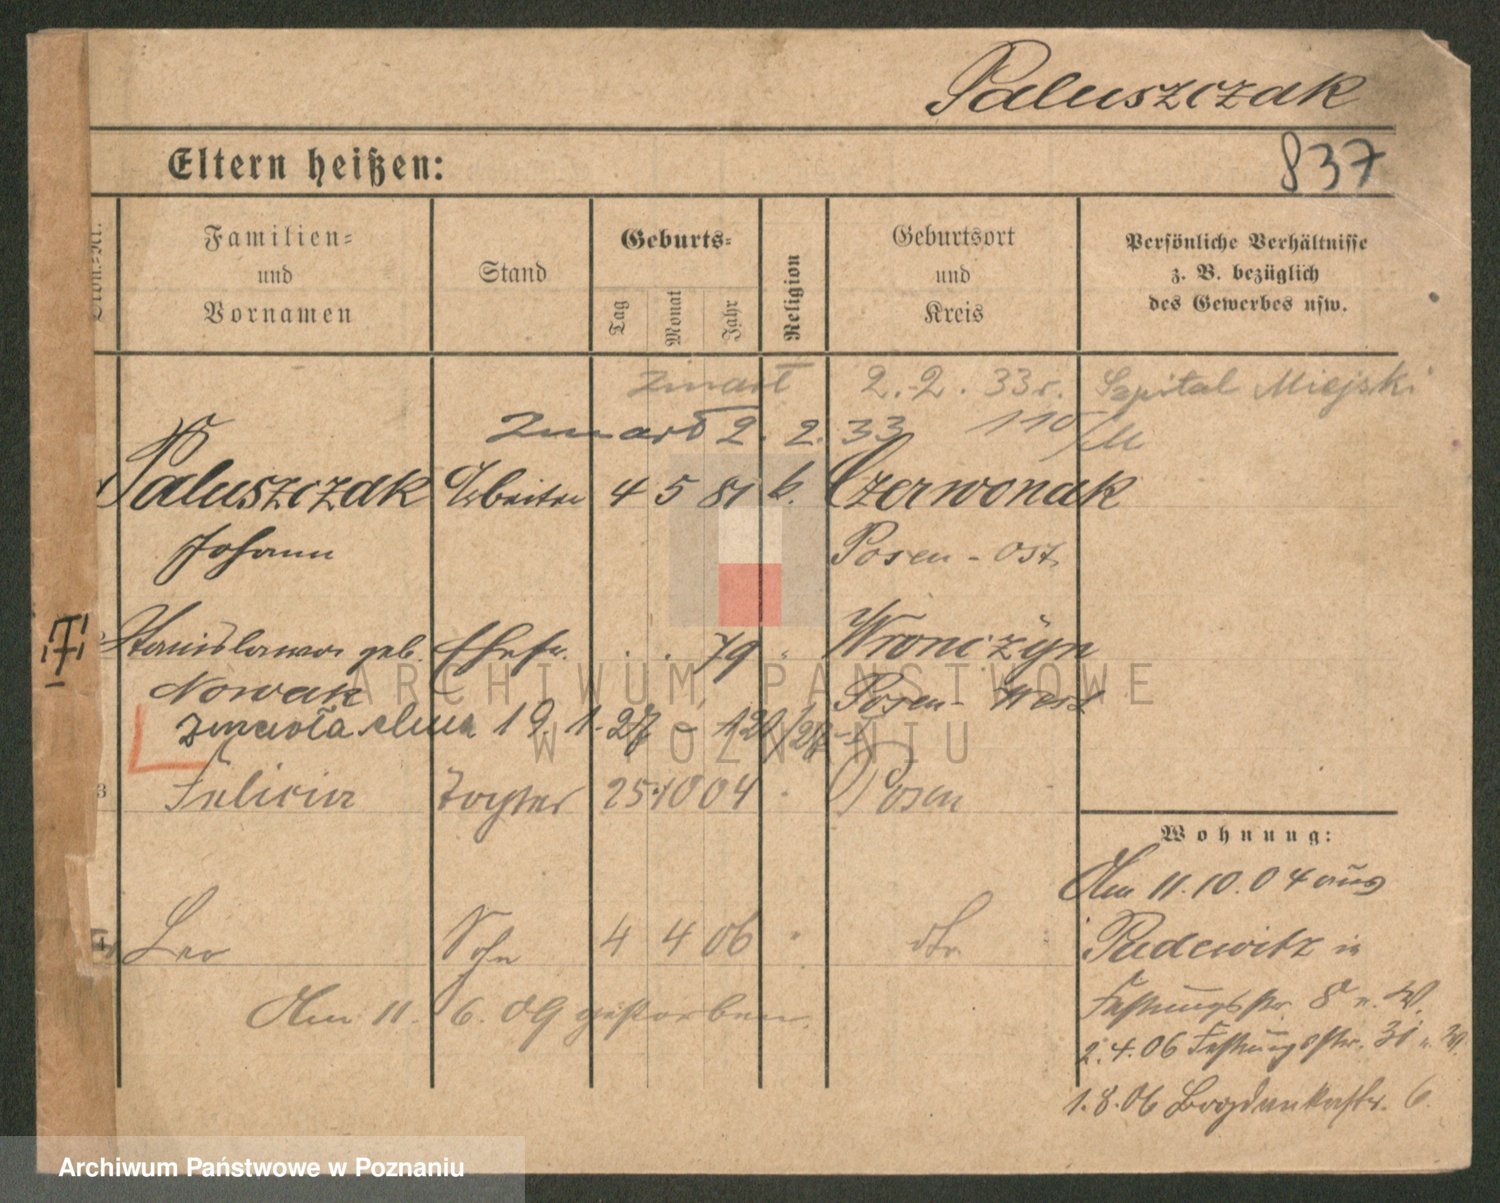 Paluszczak
Eltern heißen:
837
Familien-
und
Vornamen
Stand
Geburts-
Tag
Monat
Jahr
Religion
Geburtsort
und
Kreis
Persönliche Verhältnisse
z. B. bezüglich
des Gewerbes usw.
zmarł 2.2.33r. Szpital Miejski
zmarł 2.2.33 110/M
Paluszczak Arbeiter 4 5 81 k. Czerwonak
Johann Posen-Ost
Stanislawa geb. Ehefr. . . 79 " Wronczyn
Nowak Posen-West
zmarła dnia 19.1.27
3 Felicia Tochter 25 10 04 " Posen
4 Leo Sohn 4 4 06 " dto.
Am 11. 6. 09 gestorben.
Wohnung:
Am 11.10.04 aus
Pudewitz in
Festungsstr. 8 n. W.
2.4.06 Festungsstr. 31 n. W.
1.8.06 Bogdankastr. 6.
ARCHIWUM PAŃSTWOWE
W POZNANIU
Archiwum Państwowe w Poznaniu